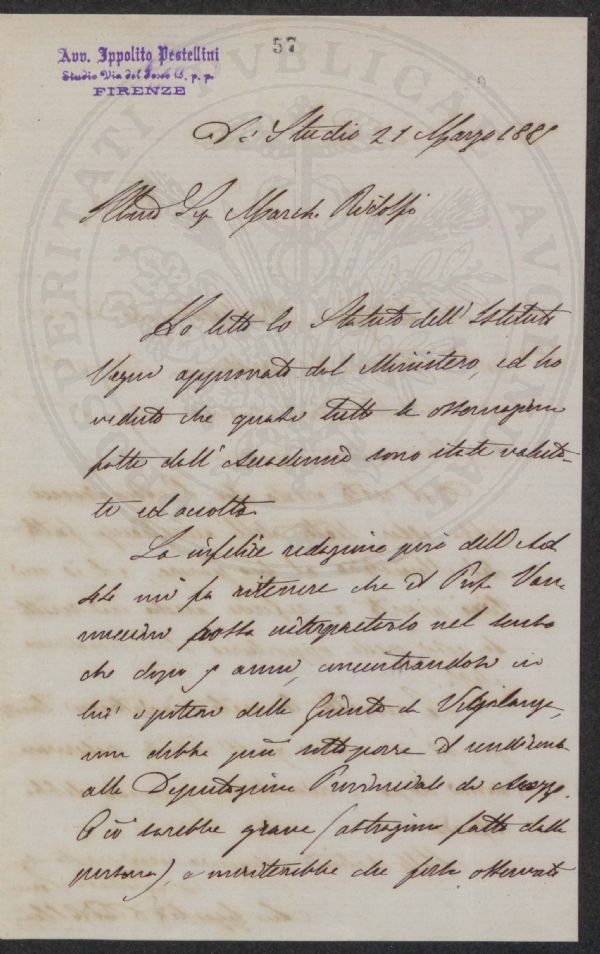 57
Avv. Ippolito Pestellini
Studio Via del
FIRENZE
Studio 21 Marzo 188
March. Ridolfi
Ho letto lo Statuto dell' Istituto
Vegni approvato dal Ministero, ed ho
veduto che quasi tutte le osservazioni
fatte dall' Accademia sono state valuta-
te ed accolte.
La infelice redazione però dell' Art.
44 mi fa ritenere che il Prof. Van-
nuccini possa interpretarlo nel senso
che dopo 5 anni, concentrandosi in
lui i poteri della Giunta di Vigilanza,
non debba più sottoporre il rendiconto
alla Deputazione Provinciale di Arezzo.
E ciò sarebbe grave (astrazione fatta dalla
persona), e meriterebbe che fosse osservato
PROSPERITATI PVBLICAE AVGENDAE